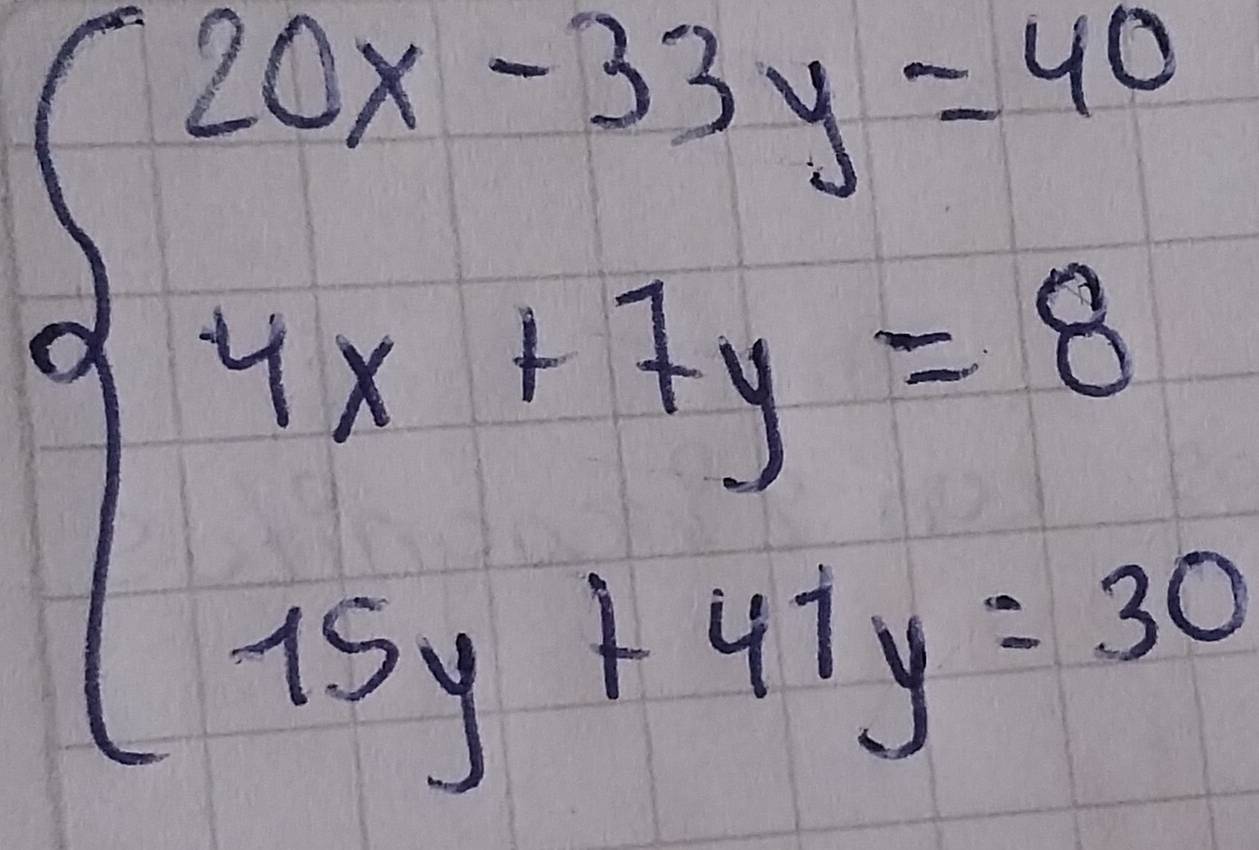 20x - 33y = 40
4x + 7y = 8
15y + 41y = 30